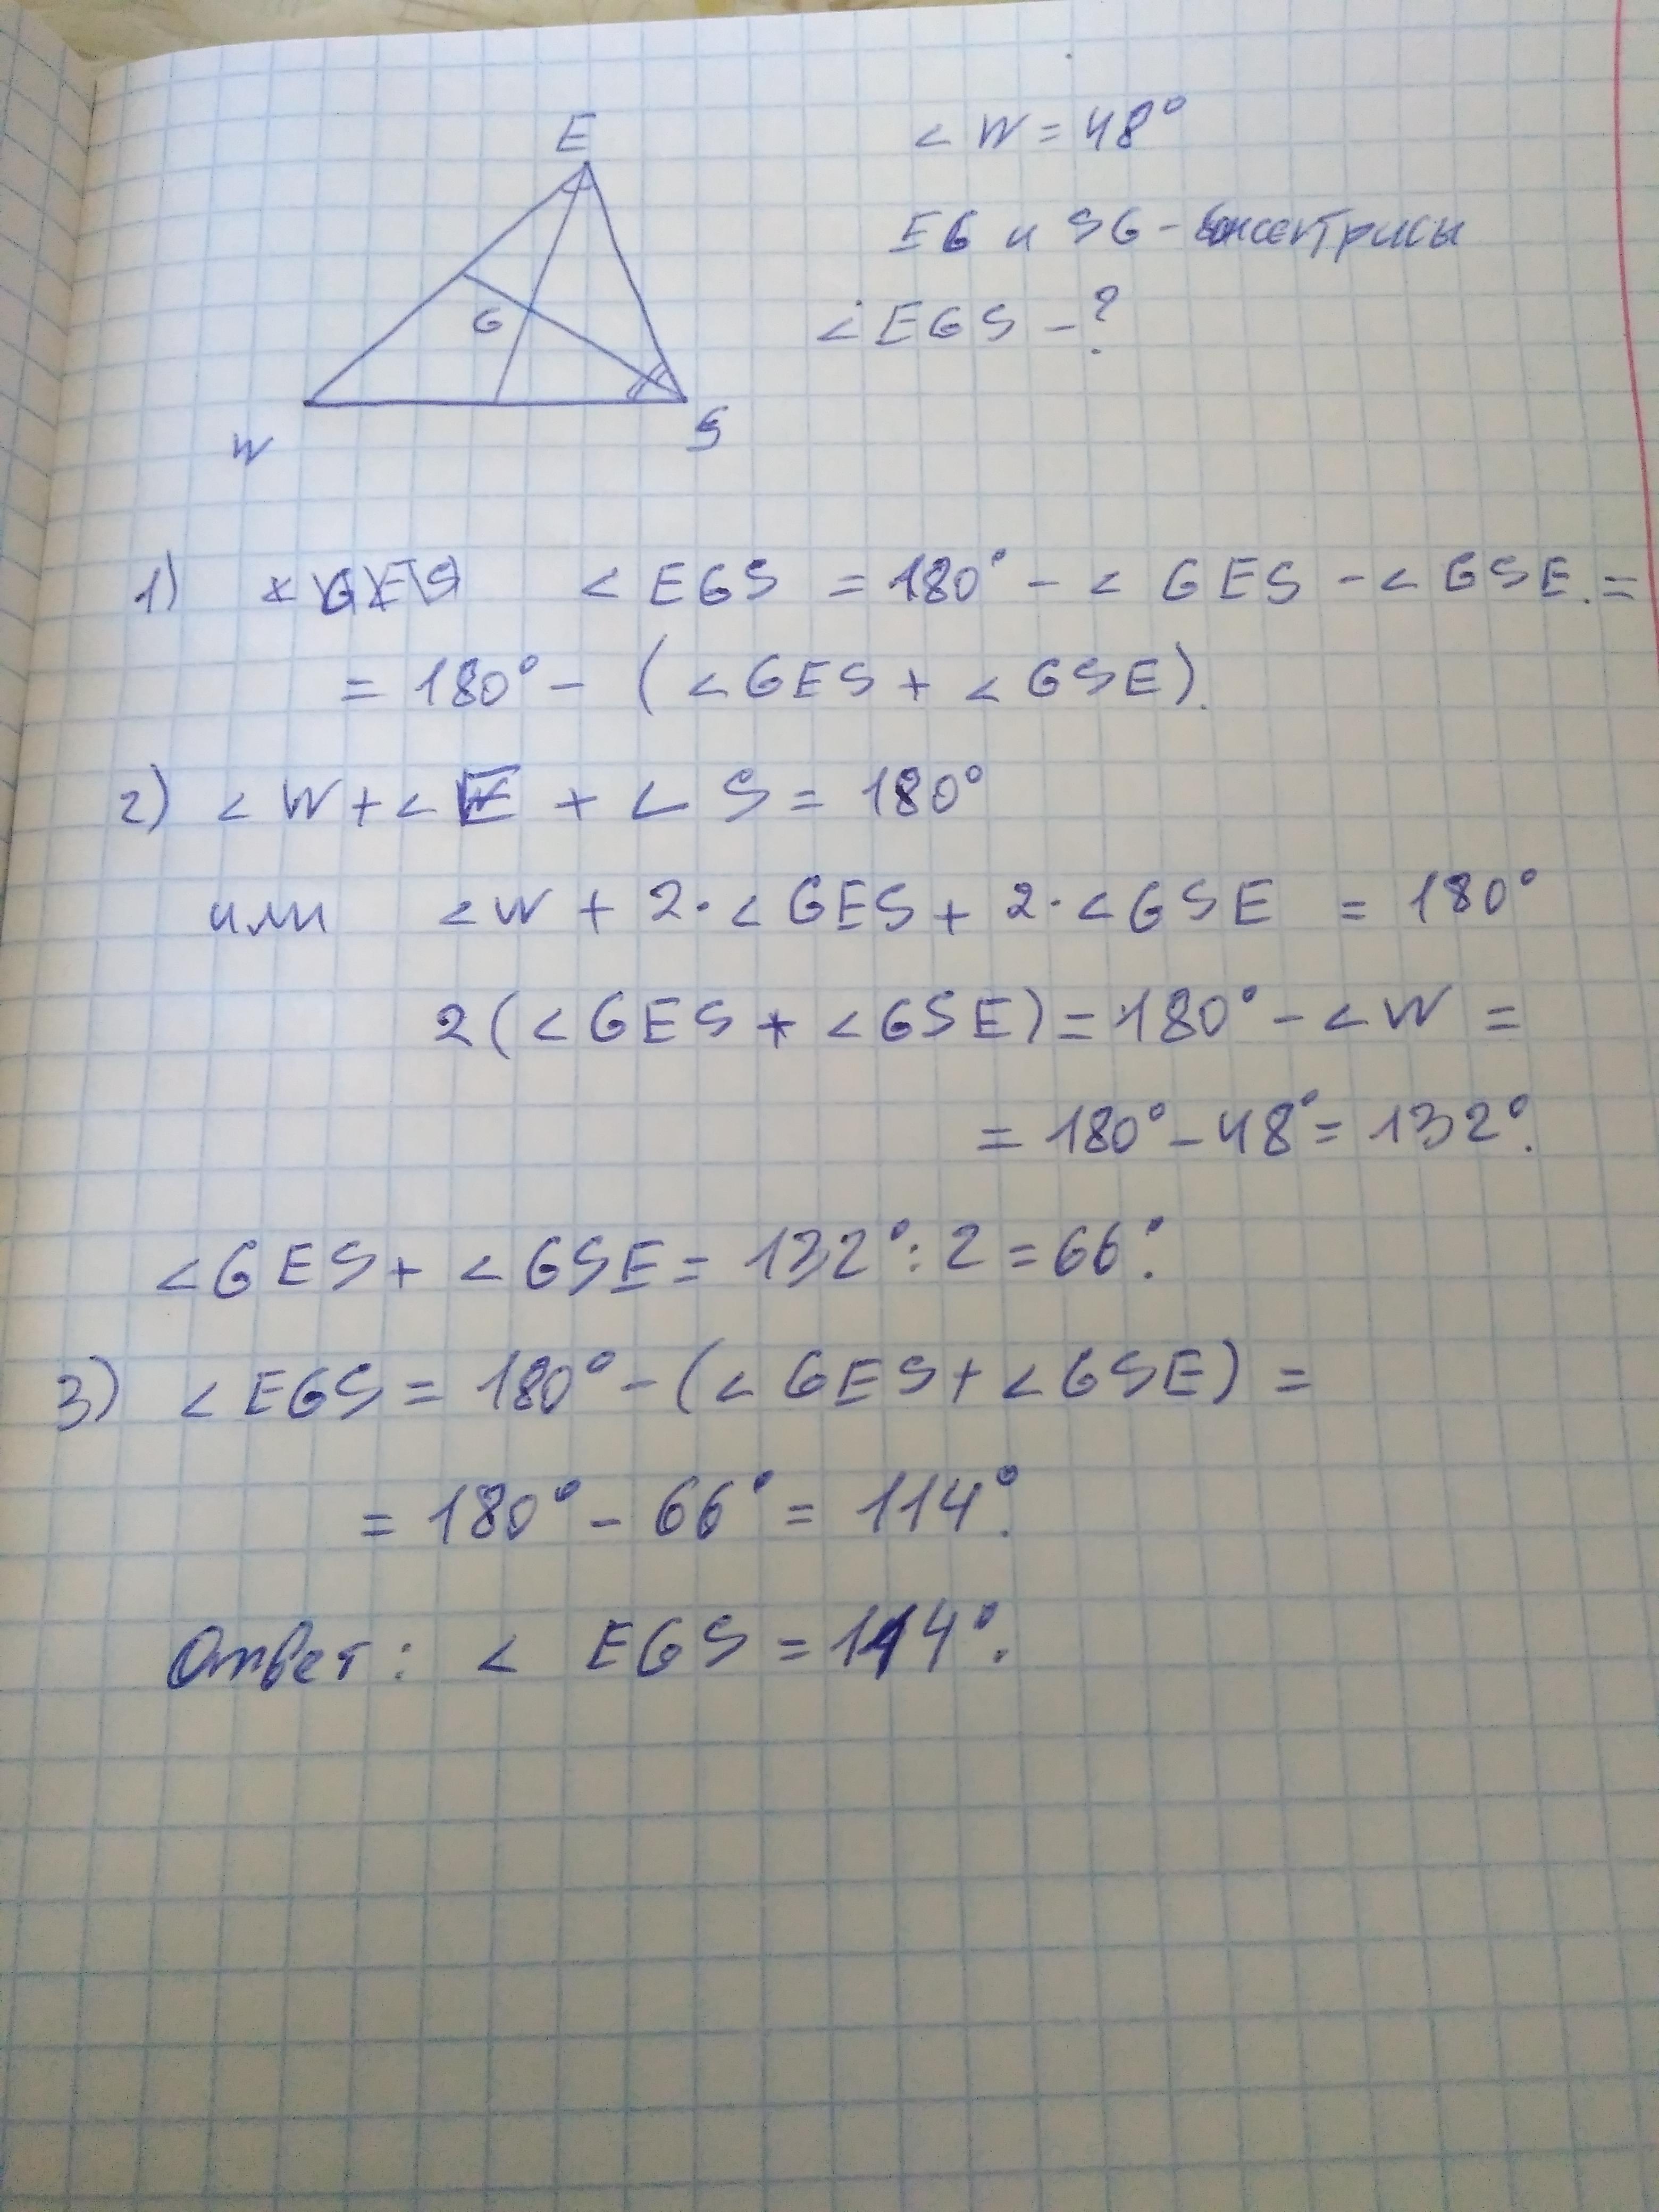 E
∠ W = 48°
EG и SG - биссектрисы
∠ EGS - ?
G
W
S
1) ∠ EGS = 180° - ∠ GES - ∠ GSE. =
= 180° - (∠GES + ∠GSE).
2) ∠ W + ∠ E + ∠ S = 180°
или ∠W + 2·∠GES + 2·∠GSE = 180°
2(∠GES + ∠GSE) = 180° - ∠W =
= 180° - 48° = 132°.
∠GES + ∠GSE = 132° : 2 = 66°.
3) ∠EGS = 180° - (∠GES + ∠GSE) =
= 180° - 66° = 114°.
Ответ: ∠ EGS = 114°.